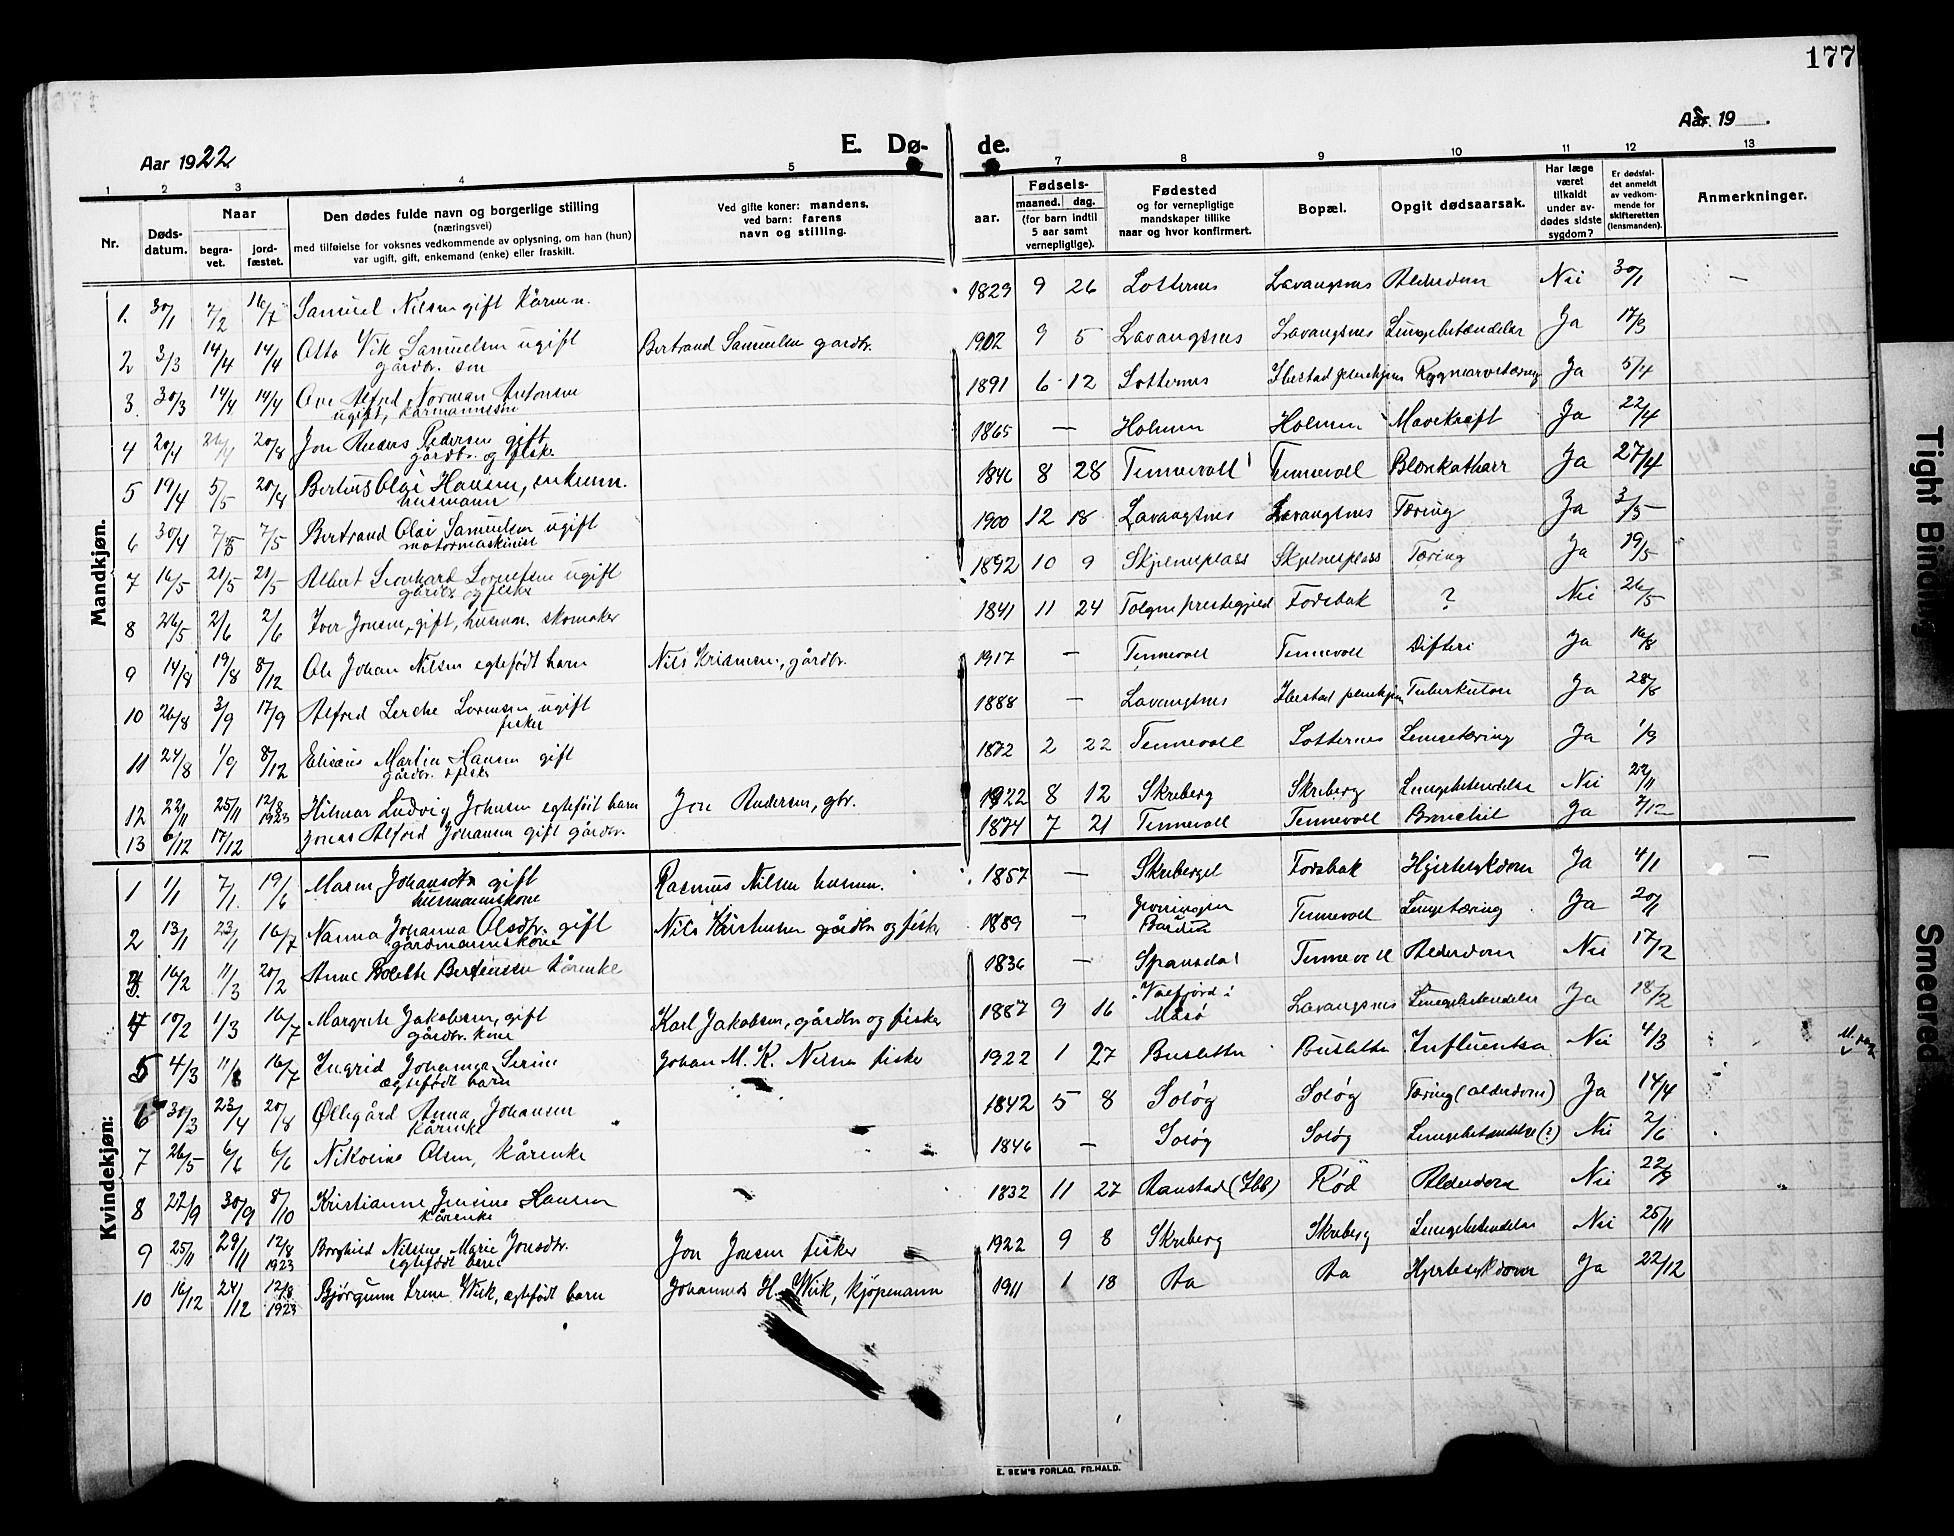 177
Aar 1922
E. Dø-
de.
Aar 19
1 2 3 4 5 7 8 9 10 11 12 13
Nr.
Døds-
datum.
Naar
begra-
vet.
jord-
fæstet.
Den dødes fulde navn og borgerlige stilling
(næringsvei)
med tilføielse for voksnes vedkommende av oplysning, om han (hun)
var ugift, gift, enkemand (enke) eller fraskilt.
Ved gifte koner: mandens,
ved barn: farens
navn og stilling.
aar.
Fødsels-
maaned. dag.
(for barn indtil
5 aar samt
vernepligtige).
Fødested
og for vernepligtige
mandskaper tillike
naar og hvor konfirmert.
Bopæl.
Opgit dødsaarsak.
Har læge
været
tilkaldt
under av-
dødes sidste
sygdom?
Er dødsfal-
det anmeldt
av vedkom-
mende for
skifteretten
(lensmanden).
Anmerkninger.
Mandkjøn.
1. 30/1 7/2 16/7 Samuel Nilsen gift kårm. 1829 9 26 Lotternes Lavangsnes Alderdom Nei 30/1 —
2 3/3 14/4 14/4 Otto Vik Samuelsen ugift Bertrand Samuelsen gardbr. 1902 9 5 Lavangsnes Lavangsnes Lungebetændelse Ja 17/3
gårdbr. søn
3. 30/3 14/4 14/4 Ove Alfred Norman Antonsen 1891 6 12 Lotternes Ibestad pleiehjem Rygmarvstæring Ja 5/4
ugift, kårmannssøn
4 20/4 26/4 20/8 Jon Anders Pedersen gift 1865 — Holmen Holmen Mavekræft Ja 22/4
gårdbr. og fisker
5 19/4 5/5 20/8 Berteus Olai Hansen, enkem. 1846 8 28 Tennevoll Tennevoll Blærekatharr Ja 27/4
husmann
6 30/4 7/5 7/5 Bertrand Olai Samuelsen ugift 1900 12 18 Lavangsnes Lavangsnes Tæring Ja 3/5
motormaskinist
7 16/5 21/5 21/5 Albert Leonhard Lorentsen ugift 1892 10 9 Skjelnesplass Skjelnesplass Tæring Ja 19/5
gårdbr. og fisker
8 26/5 2/6 2/6 Iver Jonsen, gift, husm. skomaker 1841 11 24 Tolgen prestegjeld Fodsbak ? Nei 26/5
9 14/8 19/8 8/12 Ole Johan Nilsen egtefødt barn Nils Kristnsen, gårdbr. 1917 — Tennevoll Tennevoll Difteri Ja 16/8
10 26/8 3/9 17/9 Alfred Lerche Lorensen ugift 1888 — Lavangsnes Ibestad pleiehjem Tuberkulose Ja 28/8
fisker
11 24/8 1/9 8/12 Elisæus Martin Hansen gift 1872 2 22 Tennevoll Lotternes Lungetæring Ja 1/9
gårdbr. & fisker
12 22/11 25/11 12/8 1923 Hilmar Ludvig Johnsen egtefødt barn Jon Andersen, gbr. 1922 8 12 Skreberg Skreberg Lungebetændelse Nei 22/11
13 6/12 17/12 Jonas Alfred Johansen gift gårdbr. 1874 7 21 Tennevoll Tennevoll Bronchit Ja 7/12
Kvindekjøn:
1 1/1 7/1 19/6 Maren Johansdtr. gift Rasmus Nilsen husm. 1857 — Skreberget Fodsbak Hjertesykdom Ja 4/1 —
husmannskone
2 13/1 23/1 16/7 Nanna Johanna Olsdtr. gift Nils Kristensen gårdbr og fisker 1889 — Bardu Tennevoll Lungetæring Ja 20/1
gårdmannskone
3. 16/2 11/3 20/2 Anne Bolette Berteussen kårenke 1836 — Spansdal Tennevoll Alderdom Nei 17/2
4 10/2 1/3 16/7 Margrete Jakobsen, gift Karl Jakobsen, gårdbr og fisker 1887 9 16 Valfjord i Måsø Lavangsnes Lungebetændelse Ja 18/2
gårdbr. kone
5 4/3 16/7 Ingrid Johanna Serine Johan M. K. Nilsen fisker 1922 1 27 Busletta Busletta Influentsa Nei 4/3
egtefødt barn
6 30/3 23/4 20/8 Øllegård Anna Johansen 1842 5 8 Soløg Soløg Tæring (alderdom) Ja 14/4
kårenke
7 26/5 6/6 6/6 Nikoline Olsen, kårenke 1846 — Soløg Soløg Lungebetændelse (?) Nei 2/6
8 22/9 30/9 8/10 Kristianne Jensine Hansen 1832 11 27 Aanstad (Ibb) Rød Alderdom Nei 22/9
kårenke
9 25/11 29/11 12/8 1923 Borghild Nilsine Marie Jonsdtr. Jon Jonsen fisker 1922 9 8 Skreberg Skreberg Lungebetændelse Nei 25/11
egtefødt barn
10 16/12 24/12 12/8 1923 Bjørgunn Irene Wik, egtefødt barn Johannes H. Wik, kjøpmann 1911 1 18 Aa Aa Hjertesykdom Ja 22/12
E. SEM'S FORLAG, FR.HALD.
Tight Binding
Smeared